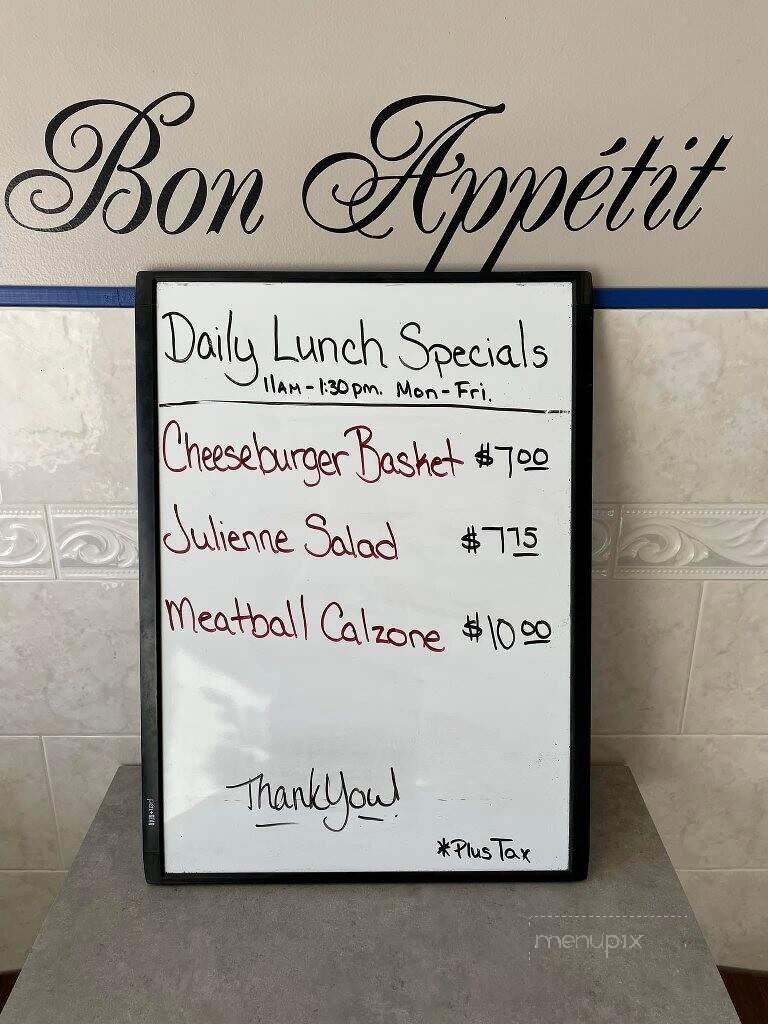 Bon Appétit
Daily Lunch Specials
11AM-1:30pm. Mon-Fri.
Cheeseburger Basket $7.00
Julienne Salad $7.75
Meatball Calzone $10.00
Thank You!
*Plus Tax
menupix